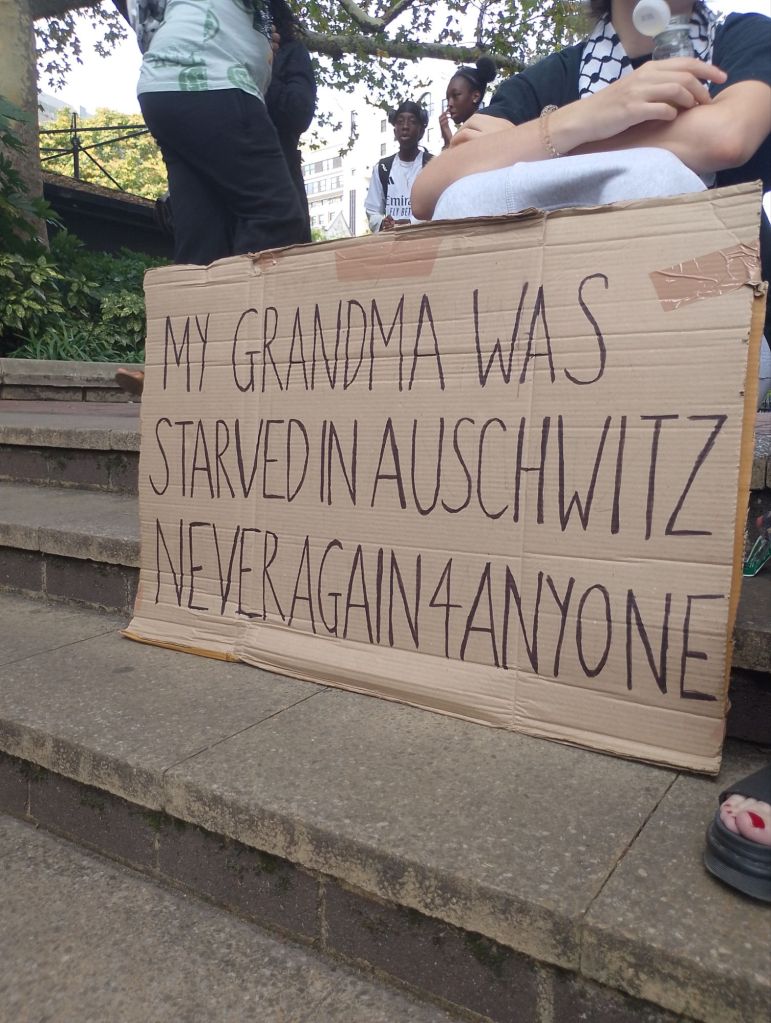 MY GRANDMA WAS
STARVED IN AUSCHWITZ
NEVER AGAIN 4 ANYONE